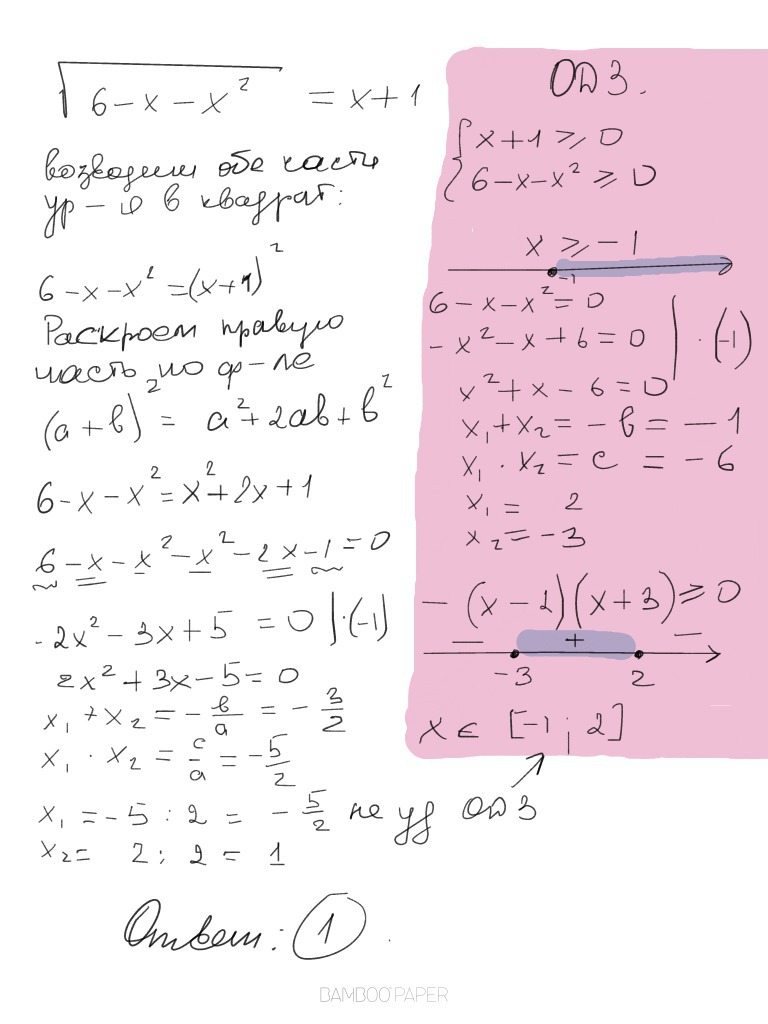 √(6-x-x²) = x+1
возводим обе части
ур-я в квадрат:
6-x-x² = (x+1)²
Раскроем правую
часть по ф-ле
(a+b)² = a²+2ab+b²
6-x-x² = x²+2x+1
6-x-x²-x²-2x-1=0
-2x²-3x+5 = 0 |·(-1)
2x²+3x-5=0
x₁+x₂ = -b/a = -3/2
x₁·x₂ = c/a = -5/2
x₁ = -5:2 = -5/2 не уд ОДЗ
x₂ = 2:2 = 1
Ответ: 1.
ОДЗ.
{ x+1 ⩾ 0
6-x-x² ⩾ 0
x ⩾ -1
-1
6-x-x²=0
-x²-x+6=0 | ·(-1)
x²+x-6=0
x₁+x₂ = -b = -1
x₁·x₂ = c = -6
x₁ = 2
x₂ = -3
-(x-2)(x+3) ⩾ 0
- + -
-3 2
x ∈ [-1; 2]
BAMBOO PAPER